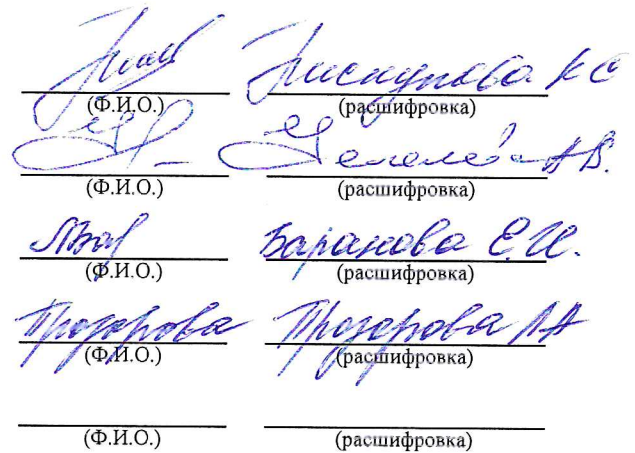 Пискунова К С
(Ф.И.О.) (расшифровка)
А В.
(Ф.И.О.) (расшифровка)
Баранова Е.И.
(Ф.И.О.) (расшифровка)
Прозорова Прозорова Л А
(Ф.И.О.) (расшифровка)
(Ф.И.О.) (расшифровка)